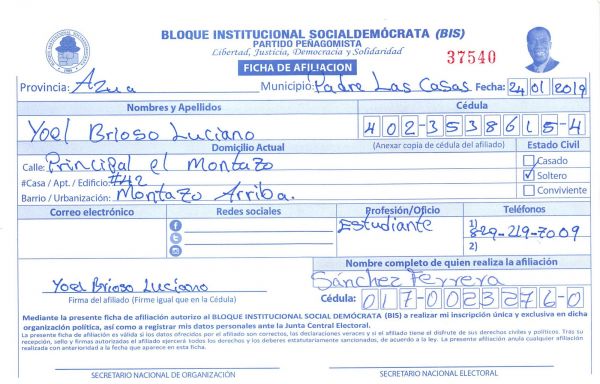 BLOQUE INSTITUCIONAL SOCIALDEMÓCRATA (BIS)
PARTIDO PEÑAGOMISTA
Libertad, Justicia, Democracia y Solidaridad
37540
FICHA DE AFILIACION
Provincia: Azua Municipio: Padre Las Casas Fecha: 24/01/2019
Nombres y Apellidos Cédula
Yoel Brioso Luciano 402-3538615-4
Domicilio Actual (Anexar copia de cédula del afiliado) Estado Civil
Calle: Principal el Montazo Casado
#Casa / Apt. / Edificio: #42 Soltero
Barrio / Urbanización: Montazo Arriba. Conviviente
Correo electrónico Redes sociales Profesión/Oficio Teléfonos
Estudiante 1) 829-219-7009
2)
Nombre completo de quien realiza la afiliación
Yoel Brioso Luciano Sánchez Ferrera
Firma del afiliado (Firme igual que en la Cédula) Cédula: 017-0023276-0
Mediante la presente ficha de afiliación autorizo al BLOQUE INSTITUCIONAL SOCIAL DEMÓCRATA (BIS) a realizar mi inscripción única y exclusiva en dicha
organización política, así como a registrar mis datos personales ante la Junta Central Electoral.
La presente ficha de afiliación es válida si los datos ofrecidos por el afiliado son correctos, las declaraciones veraces y si el titular tiene el disfrute de sus derechos civiles y políticos. Tras su
recepción, sello y firmas autorizadas el afiliado ejercerá todos los derechos y deberes estatutariamente sancionados, de acuerdo a la ley. La presente afiliación anula cualquier afiliación
realizada con anterioridad a la fecha que aparece en esta ficha.
SECRETARIO NACIONAL DE ORGANIZACIÓN SECRETARIO NACIONAL ELECTORAL